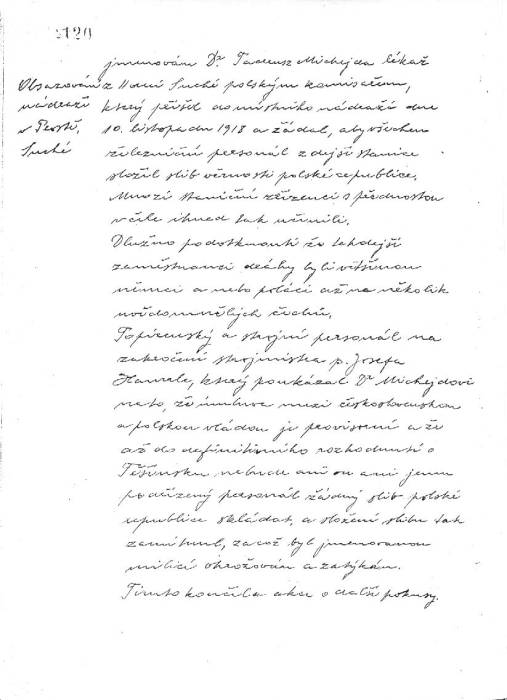 120
jmenován Dr. Tadeusz Michejda lékař
Obsazování
nádraží
v Prostř.
Suché
z Horní Suché polským komisařem,
který přišel do místního nádraží dne
10. listopadu 1918 a žádal, aby všechen
železniční personál zdejší stanice
složil slib věrnosti polské republice.
Mnozí staniční zřízenci s přednostou
v čele ihned tak učinili.
Dlužno podotknouti že tehdejší
zaměstnanci dráhy byli většinou
němci a nebo poláci až na několik
uvědomnělých čechů.
Topírenský a strojní personál na
zakročení strojmistra p. Josefa
Hamrle, který poukázal Dr Michejdovi
na to, že úmluva mezi československou
a polskou vládou je provisorní a že
až do definitivního rozhodnutí o
Těšínsku nebude ani on ani jemu
podřízený personál žádný slib polské
republice skládat, a složení slibu tak
zamítnul, začež byl jmenovanou
milicí ohrožován a zatýkán.
Tímto končila akce o další pokusy.